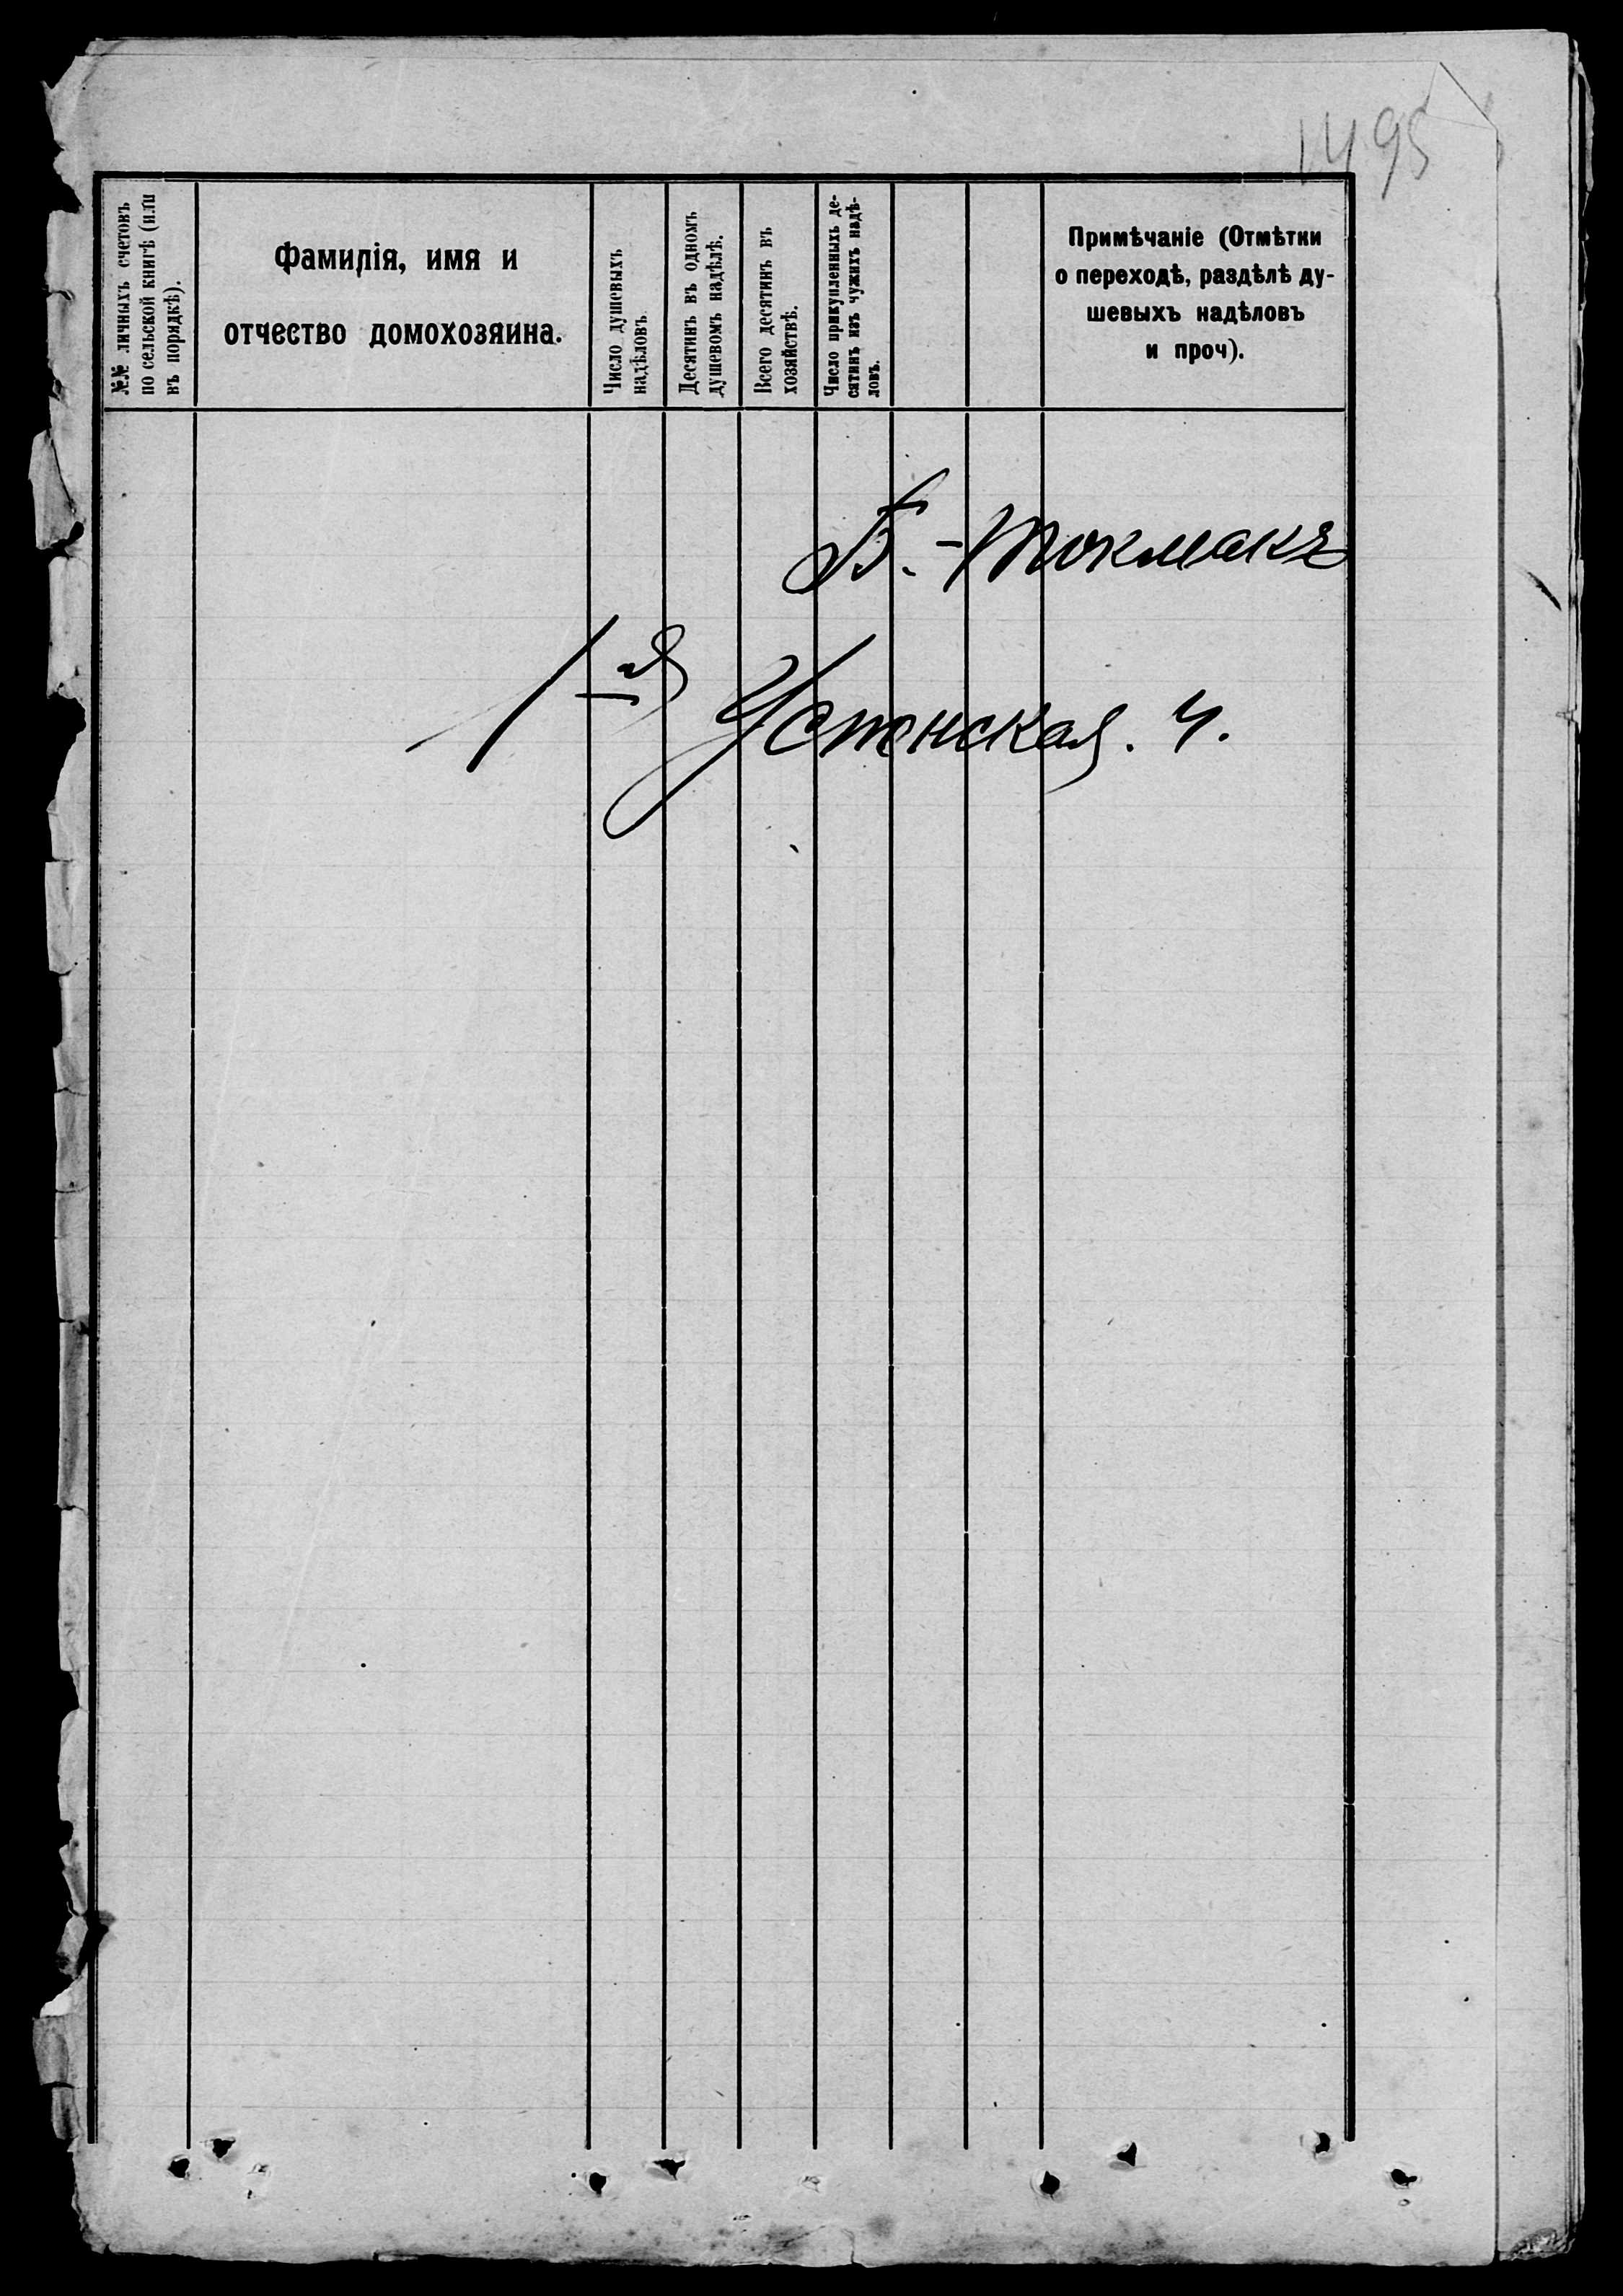 1495
№№ личныхъ счетовъ
по сельской книгѣ (или
въ порядкѣ).
Фамилія, имя и
отчество домохозяина.
Число душевыхъ
надѣловъ.
Десятинъ въ одномъ
душевомъ надѣлѣ.
Всего десятинъ въ
хозяйствѣ.
Число прикупленныхъ де-
сятинъ изъ чужихъ надѣ-
ловъ.
Примѣчаніе (Отмѣтки
о переходѣ, раздѣлѣ ду-
шевыхъ надѣловъ
и проч).
Б.-Токмакъ
1ая Успенская. ч.